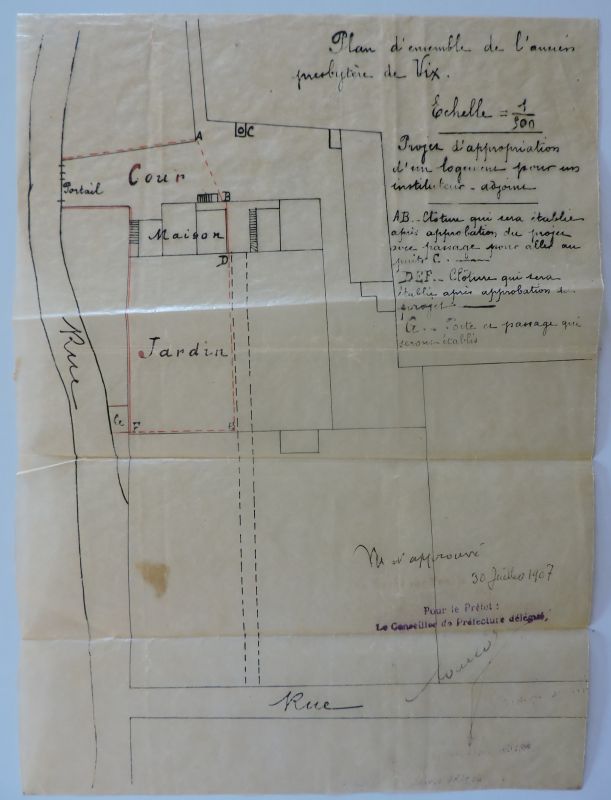 Plan d'ensemble de l'ancien
presbytère de Vix.
Echelle = 1/500
Projet d'appropriation
d'un logement pour un
instituteur-adjoint
A
C
Cour
Portail
B
Maison
D
AB._ Clôture qui sera établie
après approbation du projet
avec passage pour aller au
puits C.
DEF._ Clôture qui sera
établie après approbation du
projet.
G._ Porte et passage qui
seront établis
Rue
Jardin
G
F
E
Vu et approuvé
30 Juillet 1907
Pour le Préfet :
Le Conseiller de Préfecture délégué,
Rue